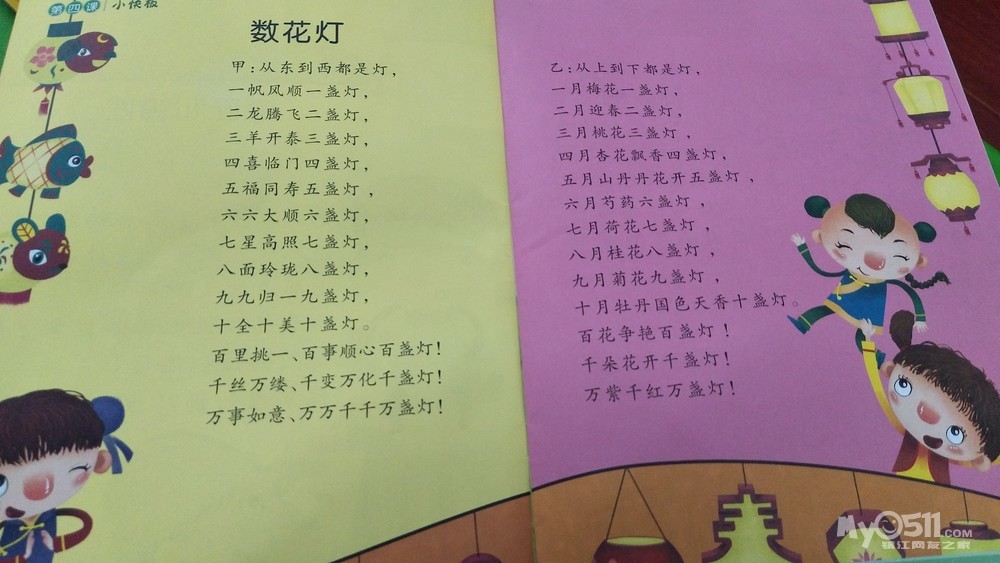 第四课 小快板
数花灯
甲:从东到西都是灯,
一帆风顺一盏灯,
二龙腾飞二盏灯,
三羊开泰三盏灯,
四喜临门四盏灯,
五福同寿五盏灯,
六六大顺六盏灯,
七星高照七盏灯,
八面玲珑八盏灯,
九九归一九盏灯,
十全十美十盏灯。
百里挑一、百事顺心百盏灯!
千丝万缕、千变万化千盏灯!
万事如意、万万千千万盏灯!
乙:从上到下都是灯,
一月梅花一盏灯,
二月迎春二盏灯,
三月桃花三盏灯,
四月杏花飘香四盏灯,
五月山丹丹花开五盏灯,
六月芍药六盏灯,
七月荷花七盏灯,
八月桂花八盏灯,
九月菊花九盏灯,
十月牡丹国色天香十盏灯。
百花争艳百盏灯!
千朵花开千盏灯!
万紫千红万盏灯!
My0511.com
镇江网友之家